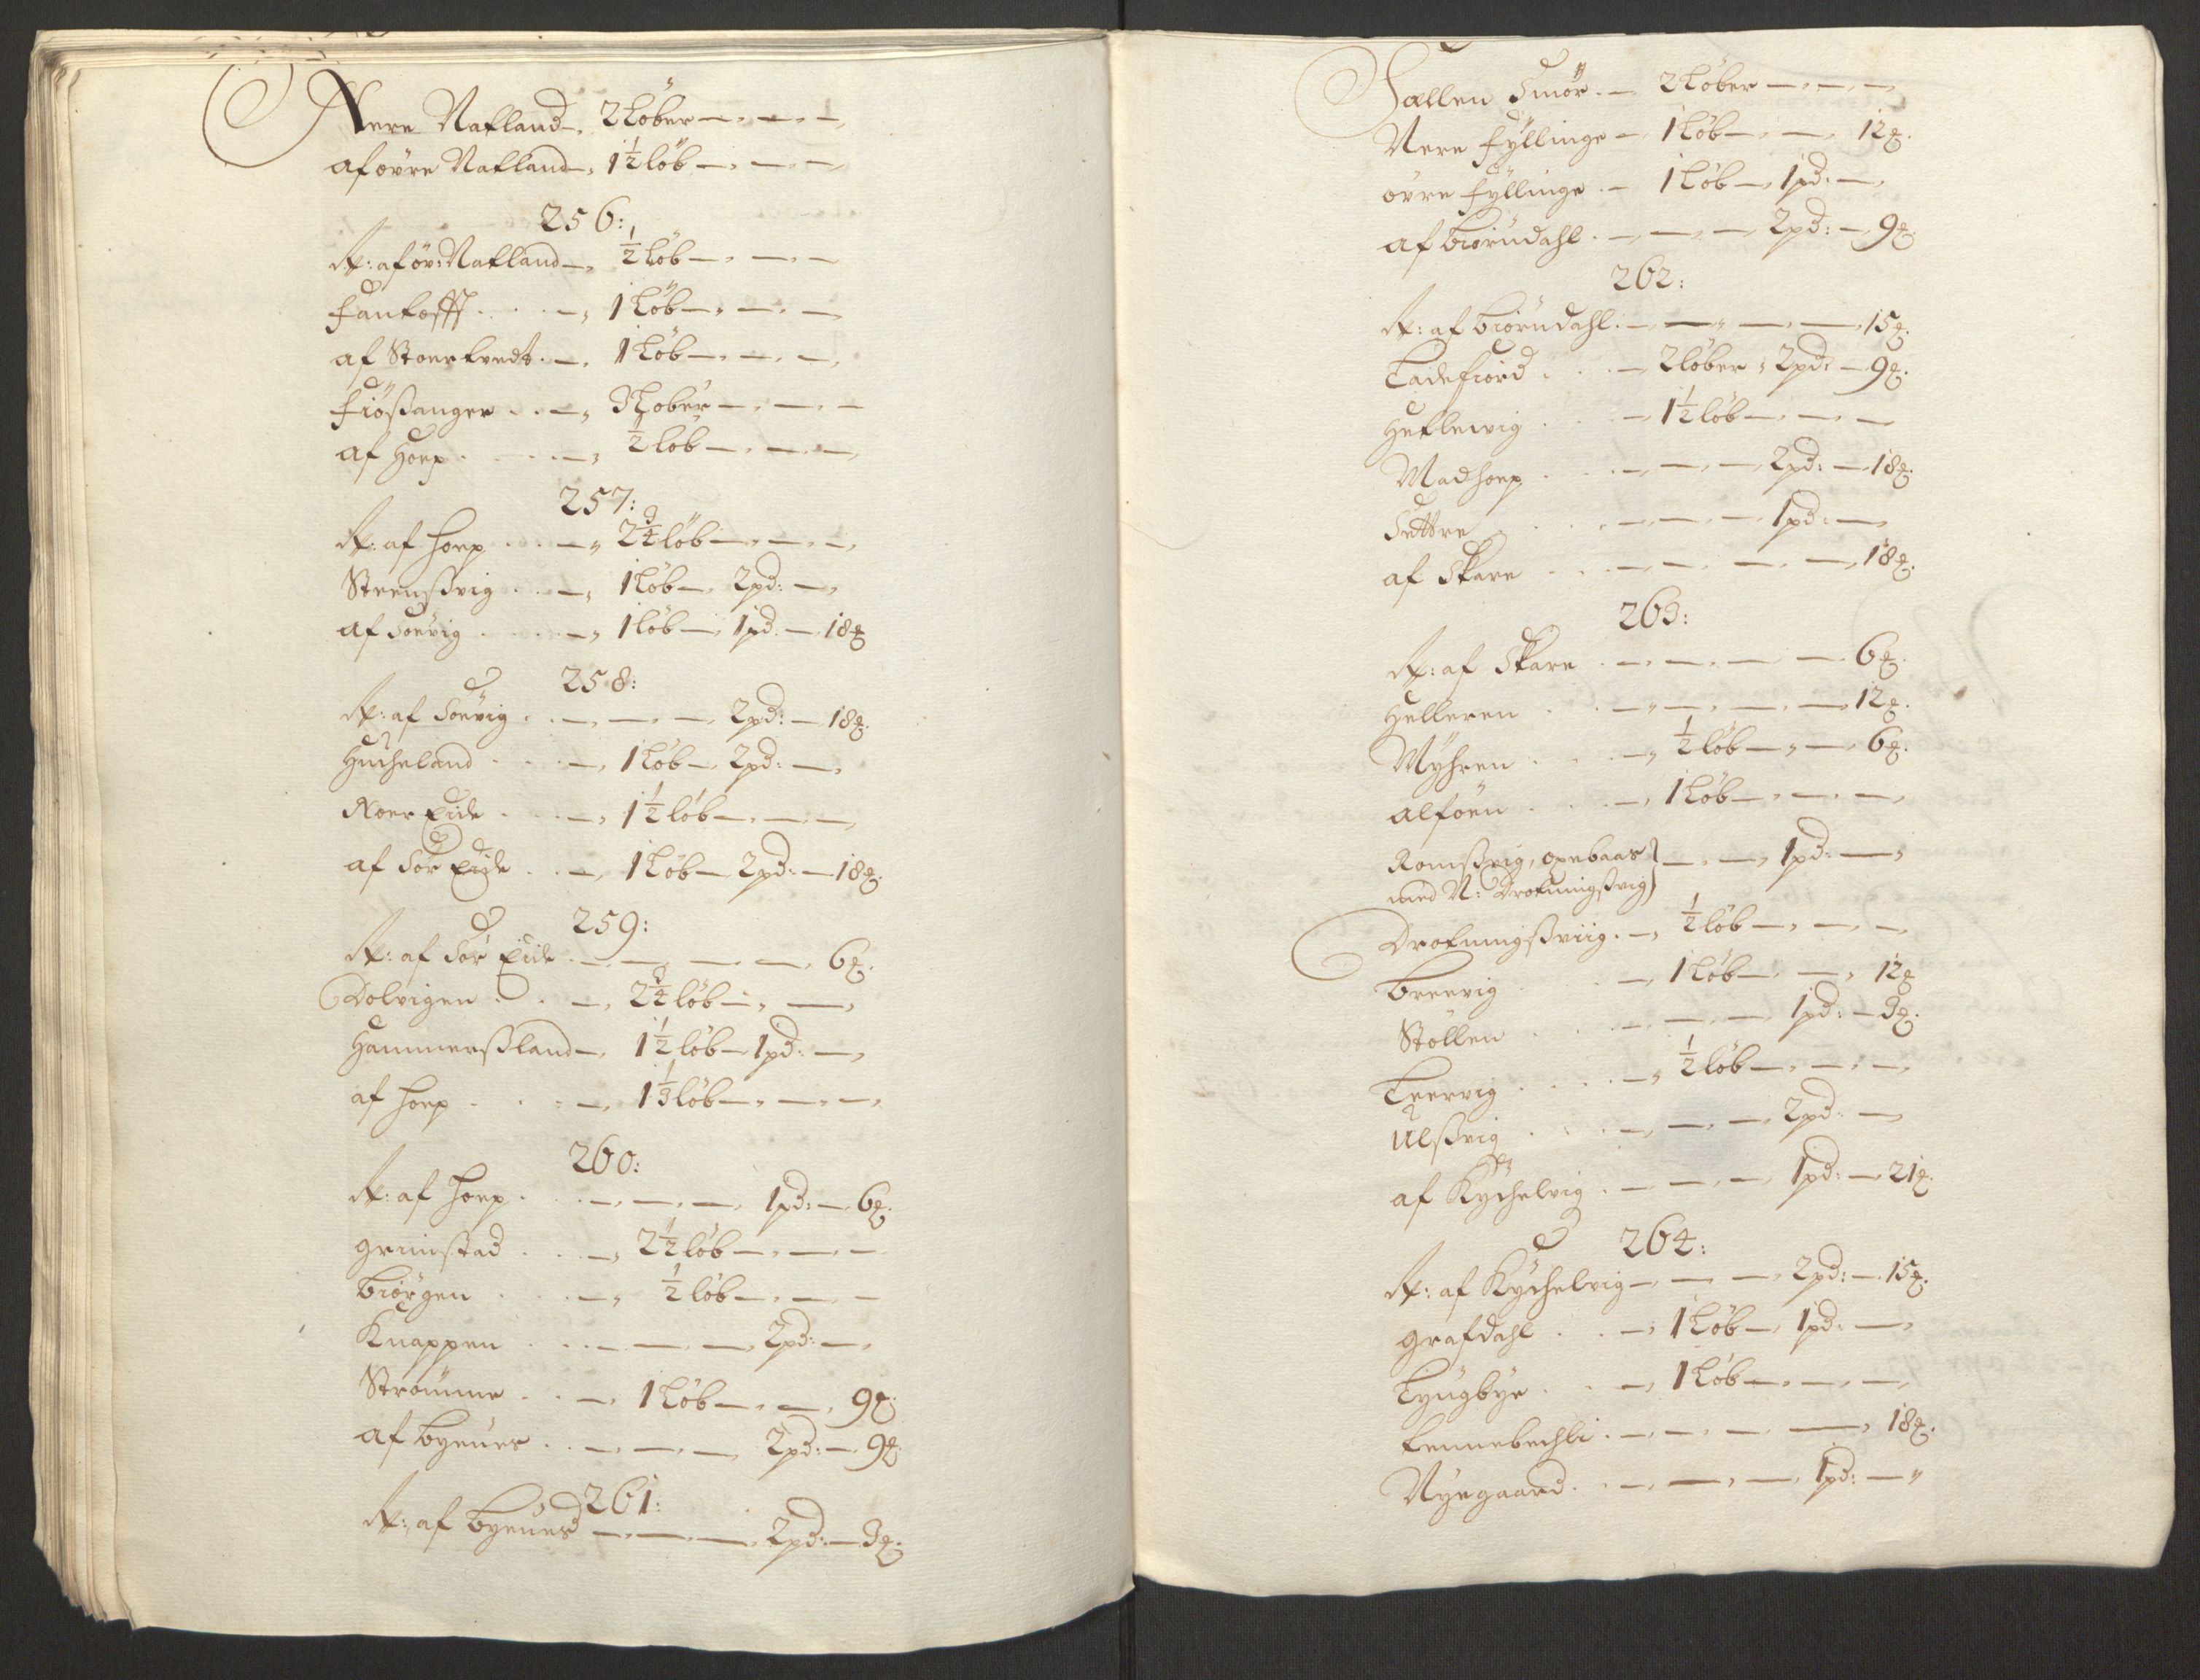 Nere Natland —, 2 Löber —, —, —,
af övre Natland —, 1½ löb —, —, —,
256:
R: af öv: Natland —, ½ löb —, —, —
Fantofft . . . —, 1 Löb —, —, —
af Storetvedt . —, 1 Löb —, —, —,
Fiösanger . . —, 3 Löber —, —, —
af Hop . . . —, ½ löb —, —, —,
257:
R: af Hop . . . —, 2¾ löb —, —, —,
Steensvig . . —, 1 Löb —, 2 pd: —,
af Søevig . . . —, 1 löb —, 1 pd: — 18 ℔
258:
R: af Søevig . . —, —, —, 2 pd: — 18 ℔.
Hucheland . . . —, 1 Löb —, 2 pd: —,
Nor Eide . . . —, 1½ löb —, —, —,
af Sör Eide . . —, 1 Löb — 2 pd: — 18 ℔.
259:
R: af Sör Eide . —, —, —, —, 6 ℔.
Dolvigen . . . —, 2¾ löb —, —,
Hammersland —, 1½ löb — 1 pd: —,
af Hop . . . —, 1⅓ löb —, —, —,
260:
R: af Hop . . —, —, —, 1 pd: — 6 ℔.
Grimstad . . . —, 2½ löb —, —, —
Biörgen . . . —, ½ löb —, —, —
Knappen . . . —, —, —, 2 pd: —,
Strømme . . . —, 1 Löb —, —, 9 ℔.
af Byenes . . —, —, —, 2 pd: — 9 ℔.
261:
R: af Byenes —, —, —, 2 pd: — 3 ℔.
Sællen Smör . — 2 Löber —, —, —,
Nere Fyllinge — 1 Löb —, —, 12 ℔.
övre Fyllinge . — 1 Löb —, 1 pd: —,
af Biörndahl . —, —, —, 2 pd: — 9 ℔.
262:
R: af Biörndahl . —, —, —, —, 15 ℔.
Tadefiord . . . — 2 löber , 2 pd: — 9 ℔.
Hetlevig . . . — 1½ löb —, —, —
Madhop . . . —, —, —, 2 pd: — 18 ℔.
Settre . . . —, —, —, 1 pd: —,
af Skare . . . —, —, —, —, 18 ℔.
263:
R: af Skare . —, —, —, —. 6 ℔.
Helleren . . . —, —, —, —, 12 ℔.
Myhren . . . —, ½ löb —, —, 6 ℔.
alföen . . . —, 1 Löb —, —, —,
Romsvig, öpebaas } —, —, 1 pd: —,
med N: Drotningsvig }
Drotningsviig . —, ½ löb —, —, —,
Breevig . . . —, 1 Löb —, —, 12 ℔
Stöllen . . . —, —, —, 1 pd: — 3 ℔.
Teervig . . . . —, ½ löb —, —, —,
Ulsvig . . . —, —, —, 2 pd: —,
af Kychelvig . —, —, —, 1 pd: — 21 ℔.
264:
R: af Kychelvig —, —, —, 2 pd: — 15 ℔.
Grafdahl . . . —, 1 Löb —, 1 pd: —,
Lyngbye . . . —, 1 Löb —, —, —,
Lennebechli . —, —, —, —, 18 ℔.
Nyegaard . . —, —, —, 1 pd: — "